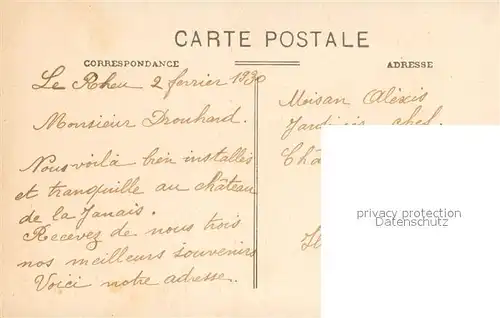 CARTE POSTALE
CORRESPONDANCE
ADRESSE
Le Rheu 2 fevrier 1930
Monsieur Drouhard.
Nous voilà bien installés
et tranquille au château
de la Janais.
Recevez de nous trois
nos meilleurs souvenirs
Voici notre adresse.
Moisan Alexis
Jardinier
privacy protection
Datenschutz